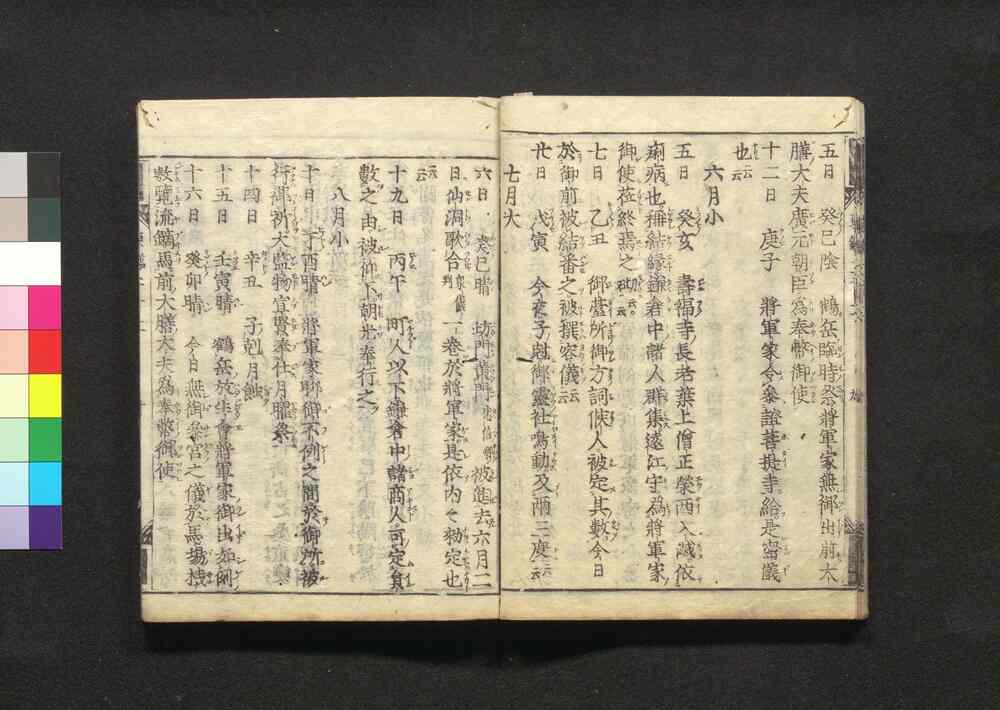 五日　癸巳陰　鶴岳臨時祭將軍家無御出前大
膳大夫廣元朝臣爲奉幣御使
十二日　庚子　將軍家令參諸菩提寺給是密儀
也云云
六月小
五日　癸亥　壽福寺長老葉上僧正榮西入滅依
痢病也稱結縁鎌倉中諸人群集遠江守爲將軍家
御使莅終焉之砌云云
七日　乙丑　御臺所御方祠候人被定其數今日
於御前被結番之被撰容儀云云
廿日　戊寅　今夜子尅御靈社鳴動及兩三度云云
七月大
六日　癸巳晴　坊門黄門 被進去六月二
日仙洞歌合 一卷於將軍家是依内々勅定也
云云
十九日　丙午　町人以下鎌倉中諸商人可定員
數之由被仰下朝光奉行之
八月小
十日　丁酉晴　將軍家聊御不例之間於御所被
行御祈大監物宣賢奉仕月曜祭
十四日　辛丑　子剋月蝕
十五日　壬寅晴　鶴岳放生會將軍家御出如例
十六日　癸卯晴　今日無御參宮之儀於馬場棧
敷覽流鏑馬前大膳大夫爲奉幣御使